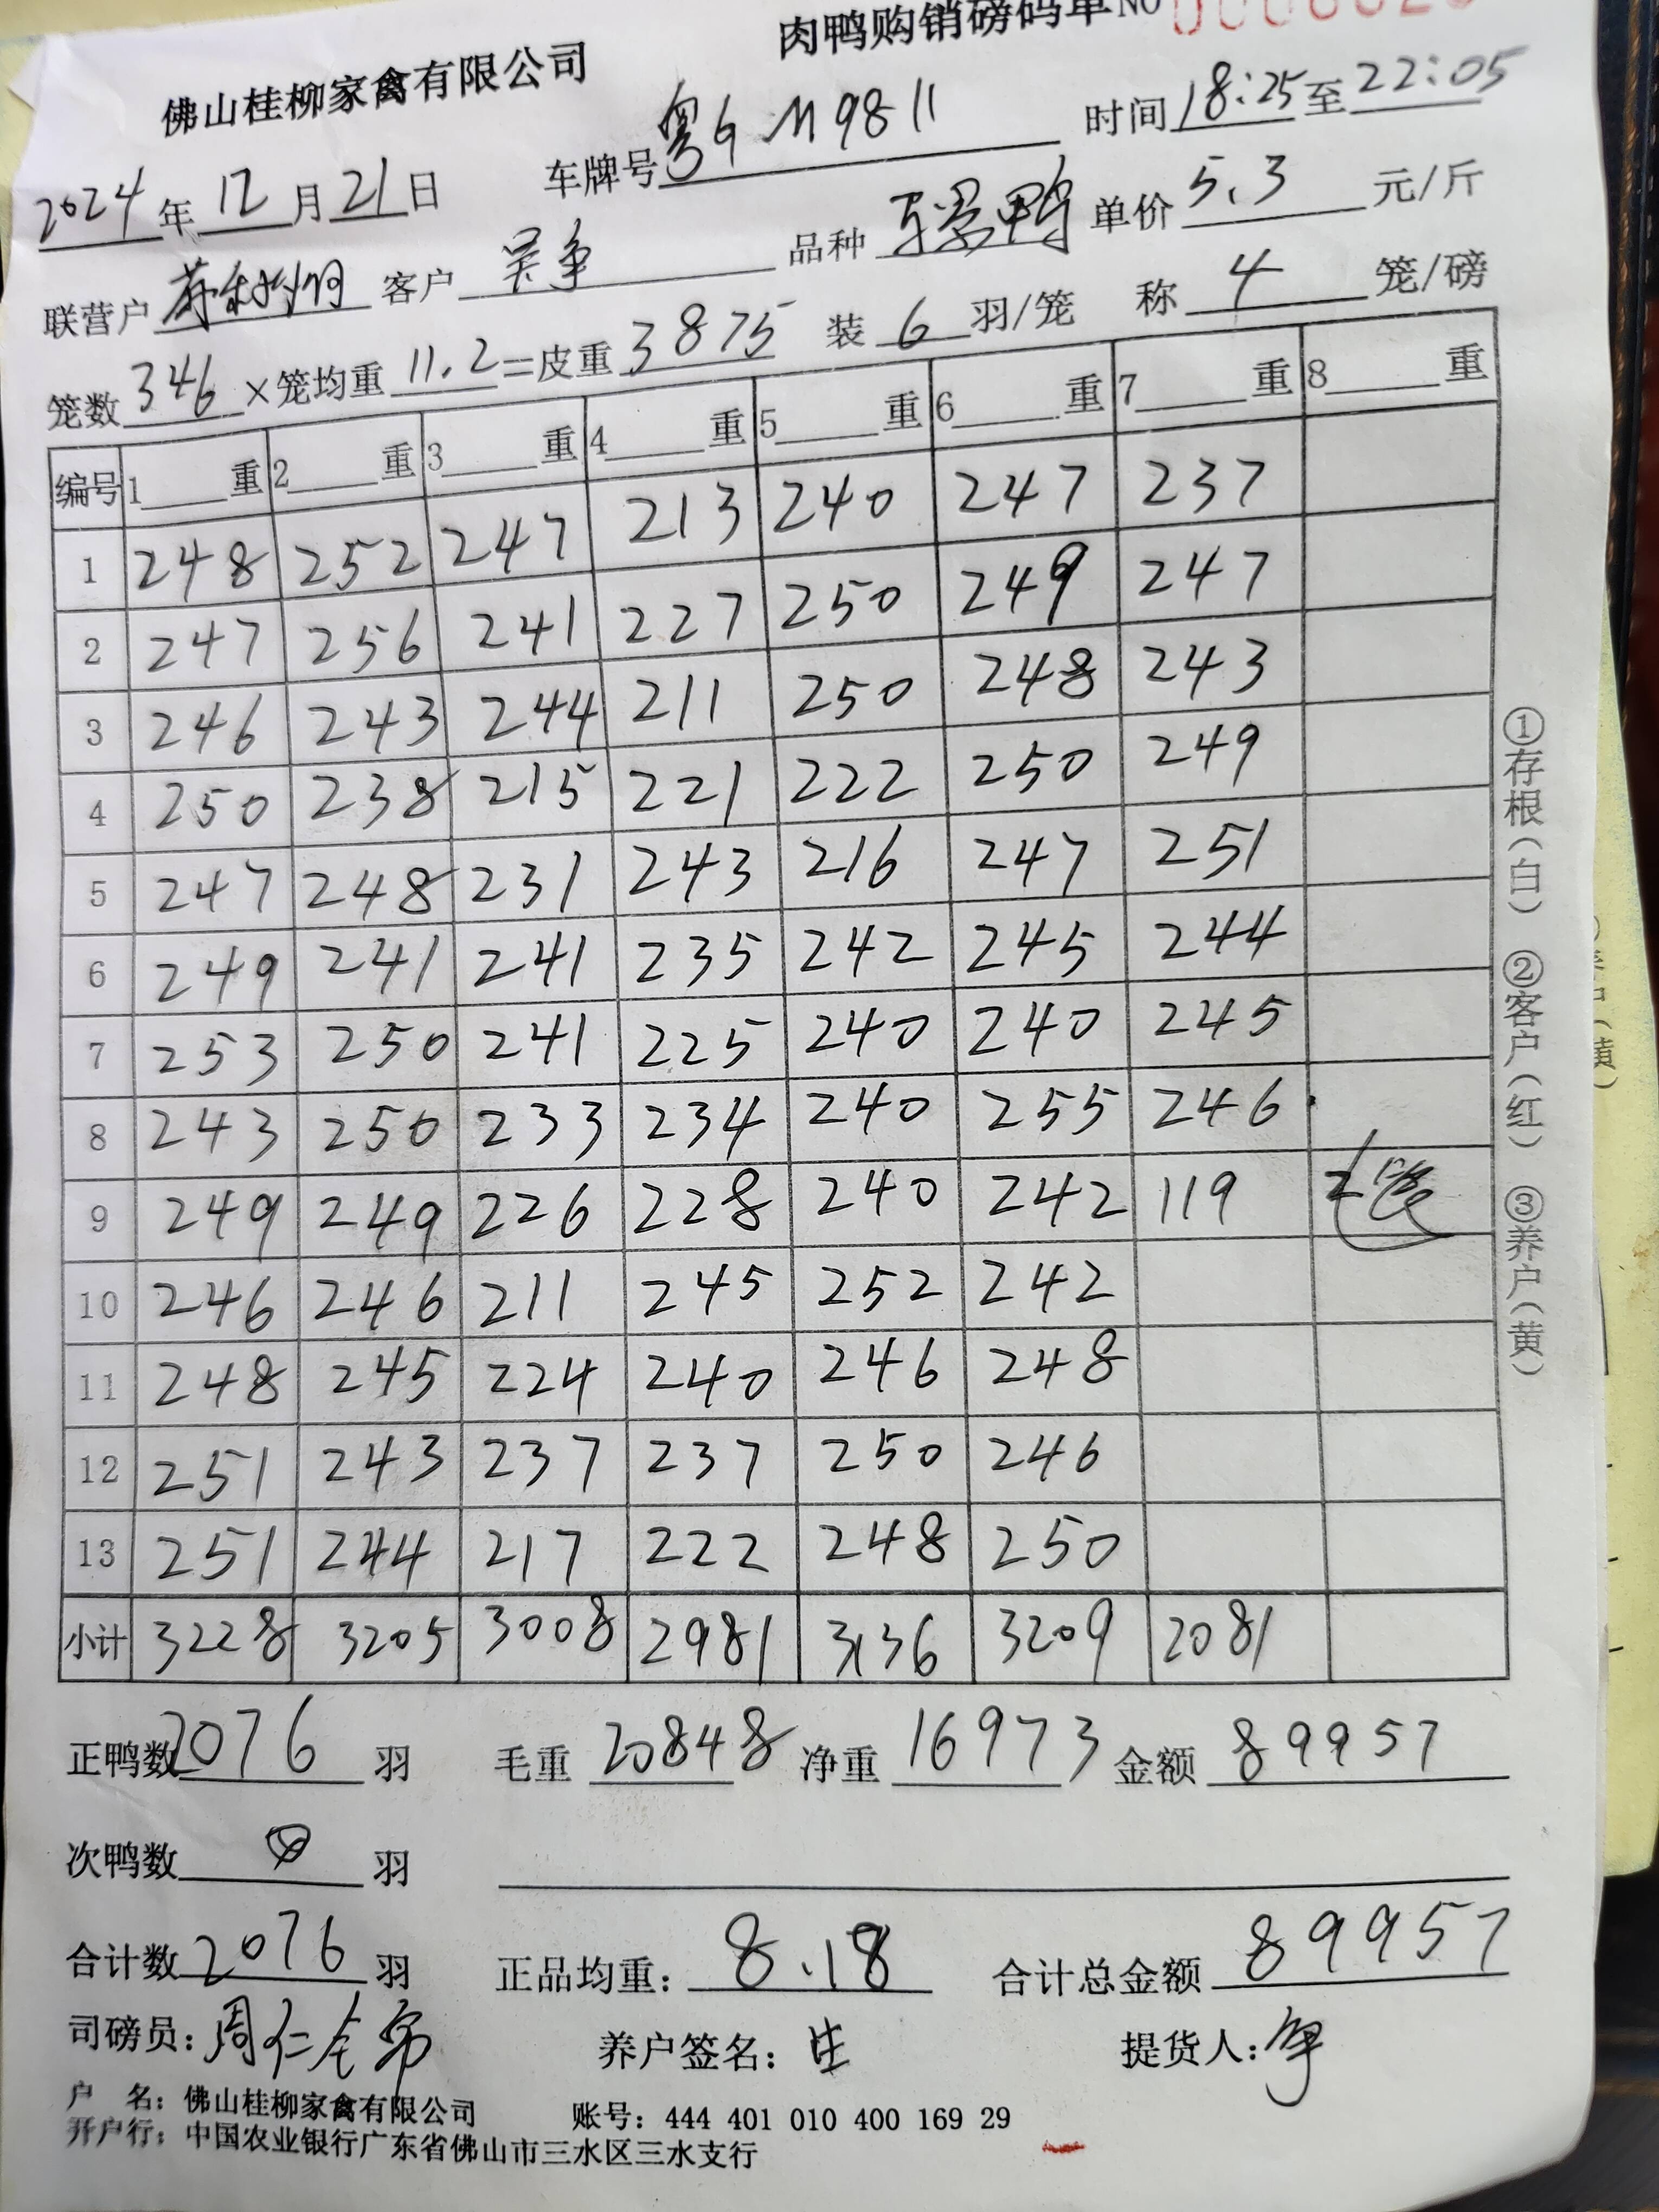 肉鸭购销磅码单 NO
佛山桂柳家禽有限公司
2024年12月21日 车牌号粤G M9811 时间18:25至22:05
联营户 客户吴争 品种 鸭 单价5.3元/斤
笼数346×笼均重11.2=皮重3875 装6羽/笼 称4笼/磅
编号 1 重 2 重 3 重 4 重 5 重 6 重 7 重 8 重
1 248 252 247 213 240 247 237
2 247 256 241 227 250 249 247
3 246 243 244 211 250 248 243
4 250 238 215 221 222 250 249
5 247 248 231 243 216 247 251
6 249 241 241 235 242 245 244
7 253 250 241 225 240 240 245
8 243 250 233 234 240 255 246
9 249 249 226 228 240 242 119
10 246 246 211 245 252 242
11 248 245 224 240 246 248
12 251 243 237 237 250 246
13 251 244 217 222 248 250
小计 3228 3205 3008 2981 3136 3209 2081
正鸭数2076羽 毛重20848 净重16973 金额89957
次鸭数 羽
合计数2076羽 正品均重:8.18 合计总金额89957
司磅员:周仁全 养户签名: 提货人:争
户 名:佛山桂柳家禽有限公司 账号:444 401 010 400 169 29
开户行:中国农业银行广东省佛山市三水区三水支行
①存根(白) ②客户(红) ③养户(黄)